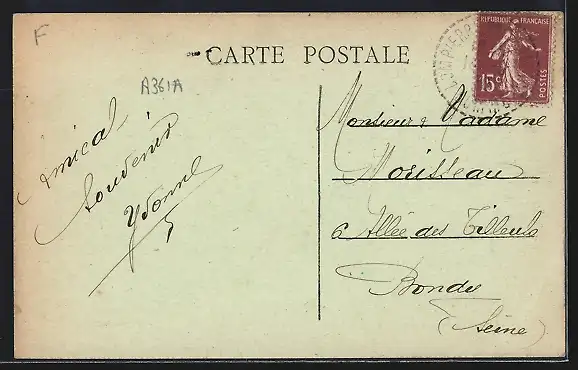 F
CARTE POSTALE
A361A
REPUBLIQUE FRANÇAISE
15c
POSTES
Amical
Souvenir
Yvonne
Monsieur & Madame
Morisseau
6 Allée des Tilleuls
Bondy
(Seine)